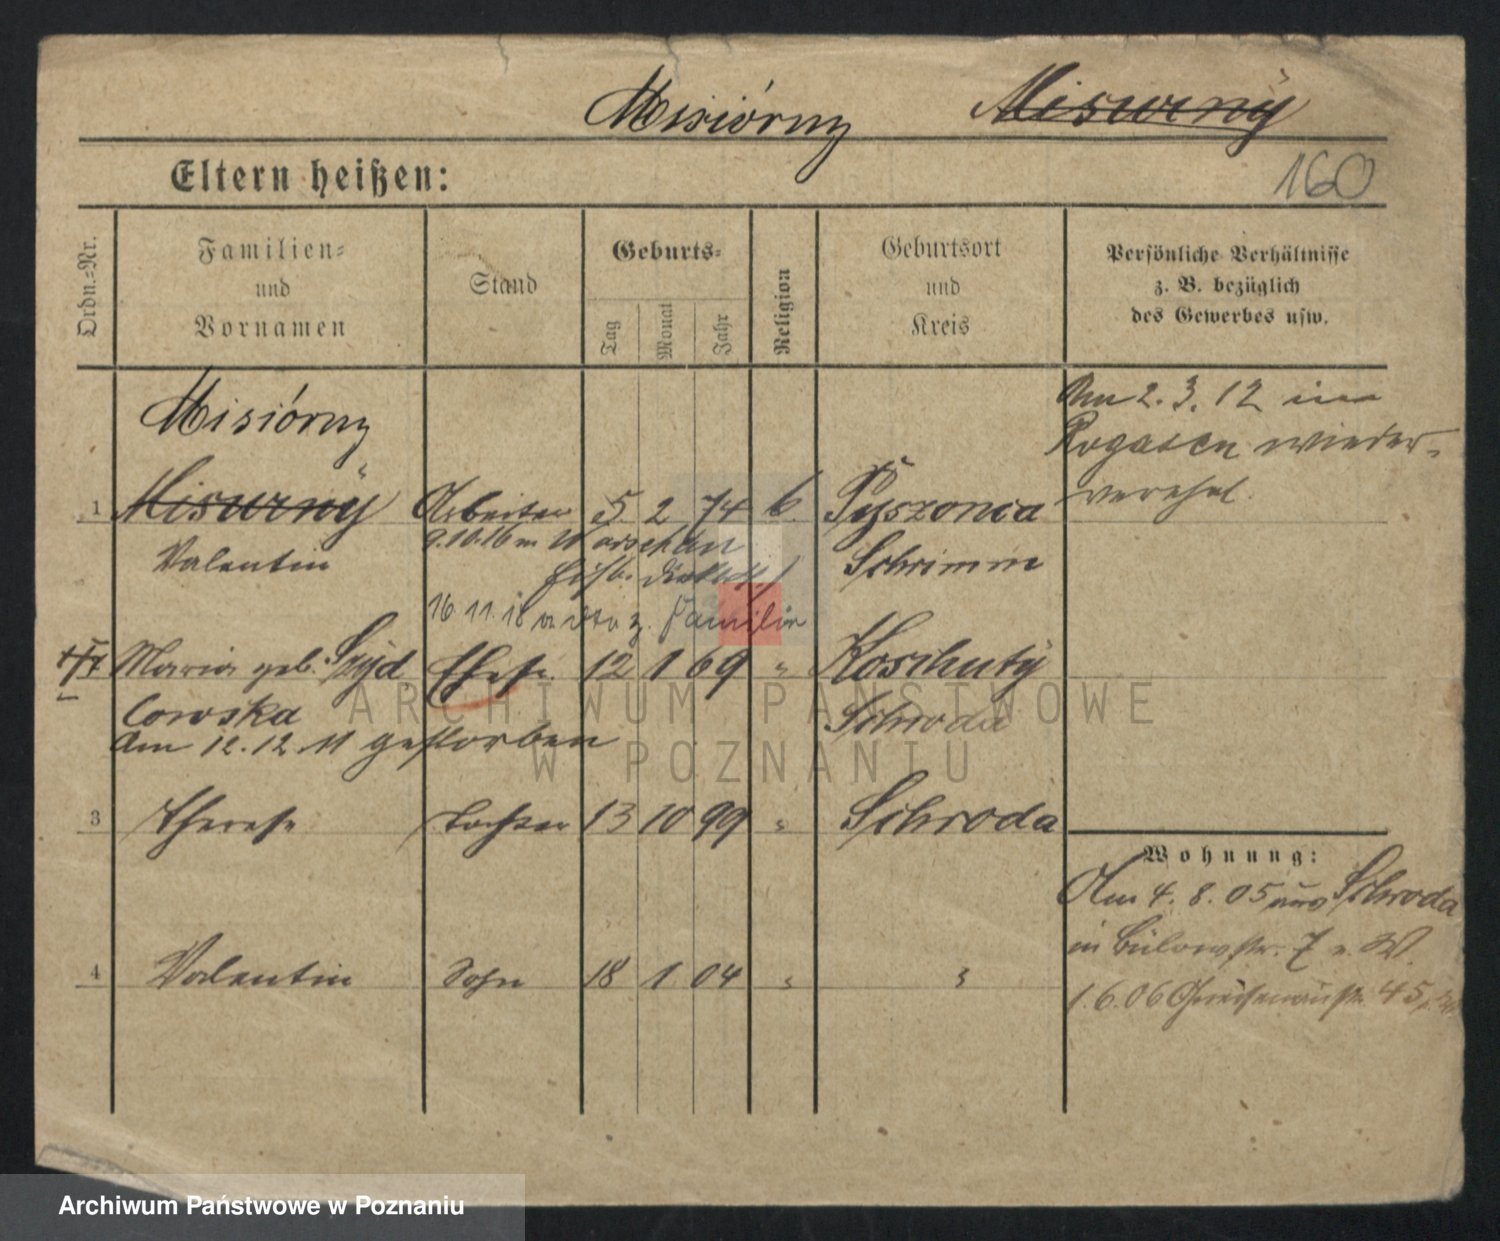 Misiórny Misurny
Eltern heißen:
160
Ordn.=Nr.
Familien=
und
Vornamen
Stand
Geburts=
Tag
Monat
Jahr
Religion
Geburtsort
und
Kreis
Persönliche Verhältnisse
z. B. bezüglich
des Gewerbes usw.
Misiórny
Am 2.3.12 in
Rogasen wieder-
verehel.
1 Misurny Arbeiter 5 2 74 k. Pyszonca
9.10.16 n Warschau
Valentin Schrimm
Eisb. Direkt.
16.11.18 v. dto z. Familie
Maria geb. Szyd Ehefr. 12 1 69 " Koszuty
lowska Schroda
Am 12.12.11 gestorben
3 Therese Tochter 13 10 99 " Schroda
Wohnung:
Am 4.8.05 aus Schroda
in Bülowstr. 7 v. W.
4 Valentin Sohn 18 1 04 " "
1.6.06 Gneisenaustr. 45
ARCHIWUM PAŃSTWOWE
W POZNANIU
Archiwum Państwowe w Poznaniu